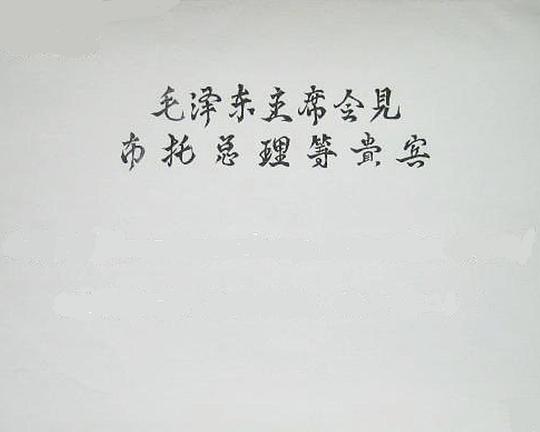 毛泽东主席会見
布托总理等貴宾